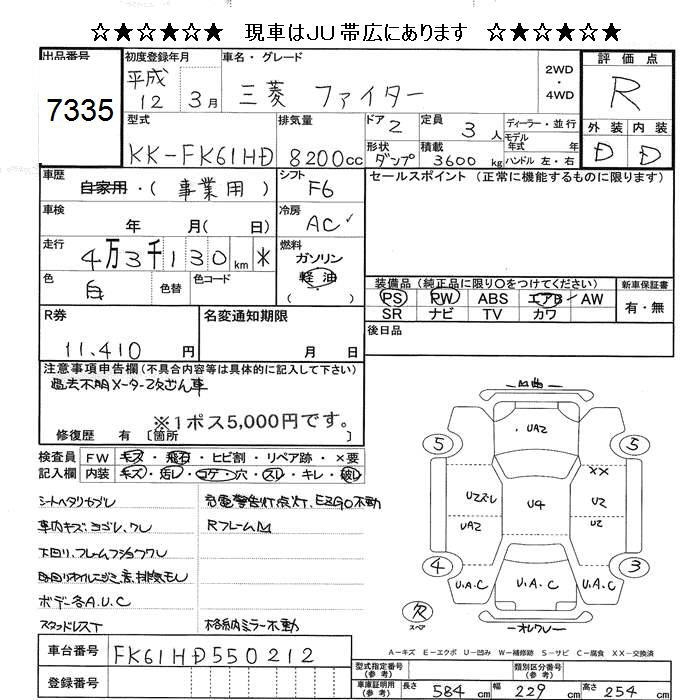 ☆★☆★☆★ 現車はJU帯広にあります ☆★☆★☆★
出品番号
7335
初度登録年月
平成
12 3月
車名・グレード
三菱 ファイター
2WD
・
4WD
評価点
R
外装 内装
D D
型式
KK-FK61HD
排気量
8200cc
ドア 2
定員 3人
ディーラー・並行
モデル
年式 年
形状
ダンプ
積載
3600kg
ハンドル 左・右
車歴
自家用・(事業用)
シフト
F6
セールスポイント (正常に機能するものに限ります)
車検
年 月( 日)
冷房
AC
走行
4万3千130km *
燃料
ガソリン
軽油
( )
色
白
色替
色コード
装備品(純正品に限り○をつけてください)
新車保証書
PS PW ABS エアB AW
SR ナビ TV カワ
有・無
R券
11,410円
名変通知期限
月 日
後日品
注意事項申告欄(不具合内容等は具体的に記入して下さい)
過去不明メーター改ざん車
※1ポス5,000円です。
修復歴 有 〔箇所 〕
検査員
記入欄
FW キズ・飛石・ヒビ割・リペア跡・×要
内装 キズ・汚レ・コゲ・穴・スレ・キレ・破レ
シートヘタリ
車内キズ、ヨゴレ、ワレ
Rフレーム
下回り、フレーム
ボデー各A.U.C
スタッドレスT
格納ミラー不動
車台番号
FK61HD550212
登録番号
型式指定番号
(参考)
類別区分番号
(参考)
車庫証明用
(参考)
長さ 584cm
幅 229cm
高さ 254cm
UA2
5 5
××
U2
U4
UA2
U2
4 3
U.A.C U.A.C U.A.C
欠
スペア
A-キズ E-エクボ U-凹み W-補修跡 S-サビ C-腐食 XX-交換済